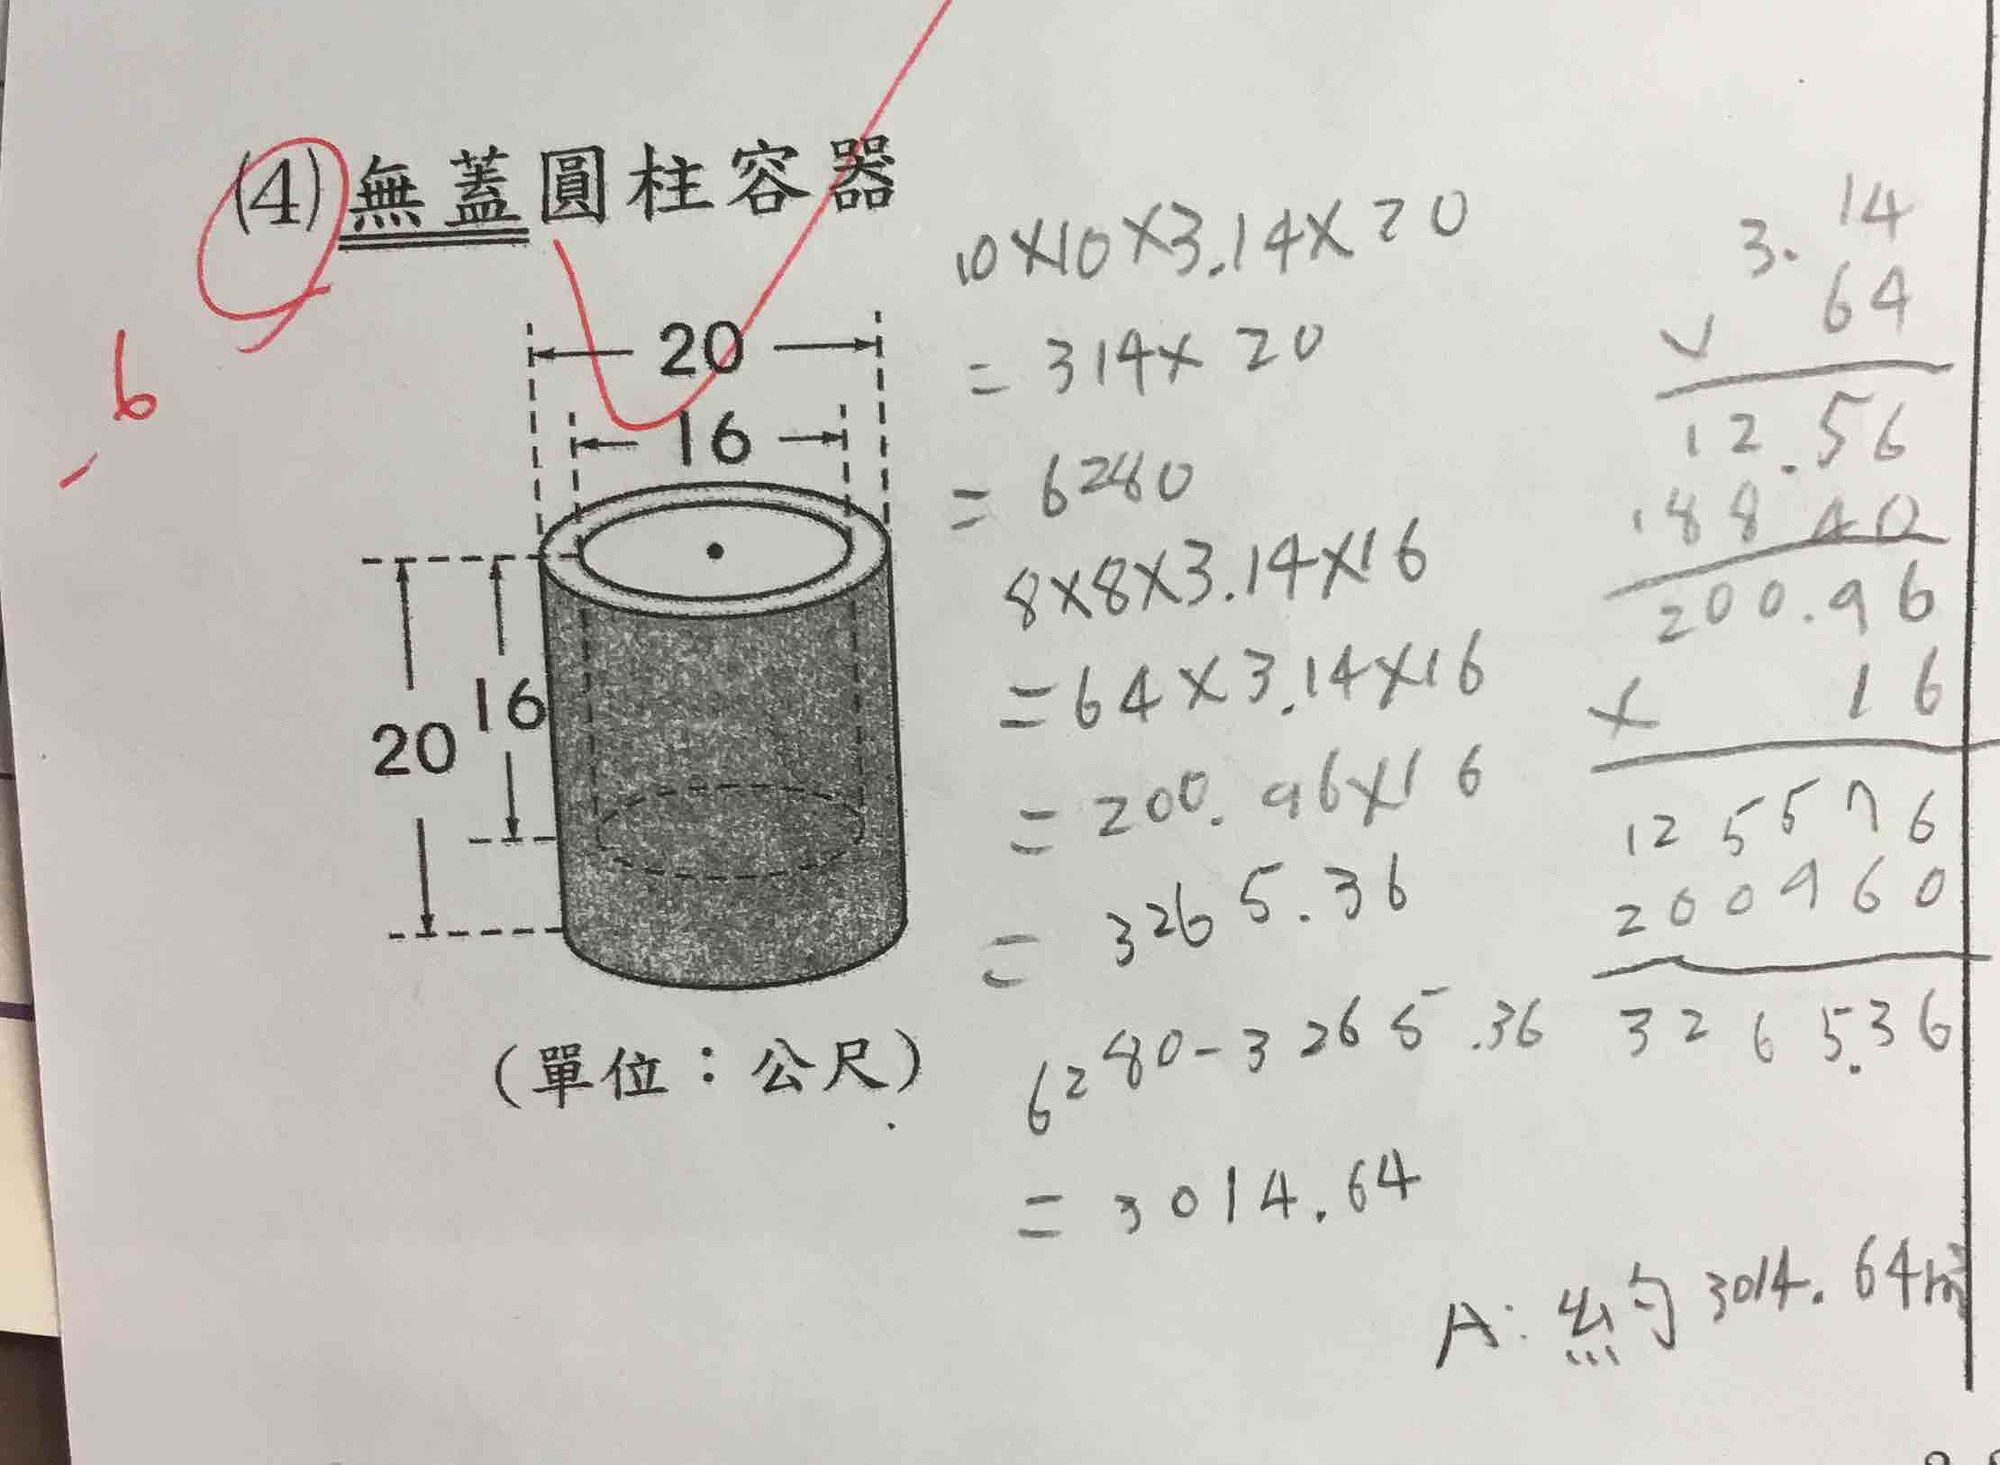 (4)無蓋圓柱容器
20
16
20
16
(單位：公尺)
6
10×10×3.14×20
=314×20
=6280
8×8×3.14×16
=64×3.14×16
=200.96×16
=3265.36
6280-3265.36
=3014.64
A:約3014.64m³
3.14
× 64
12.56
188 40
200.96
× 16
125576
200960
3265.36